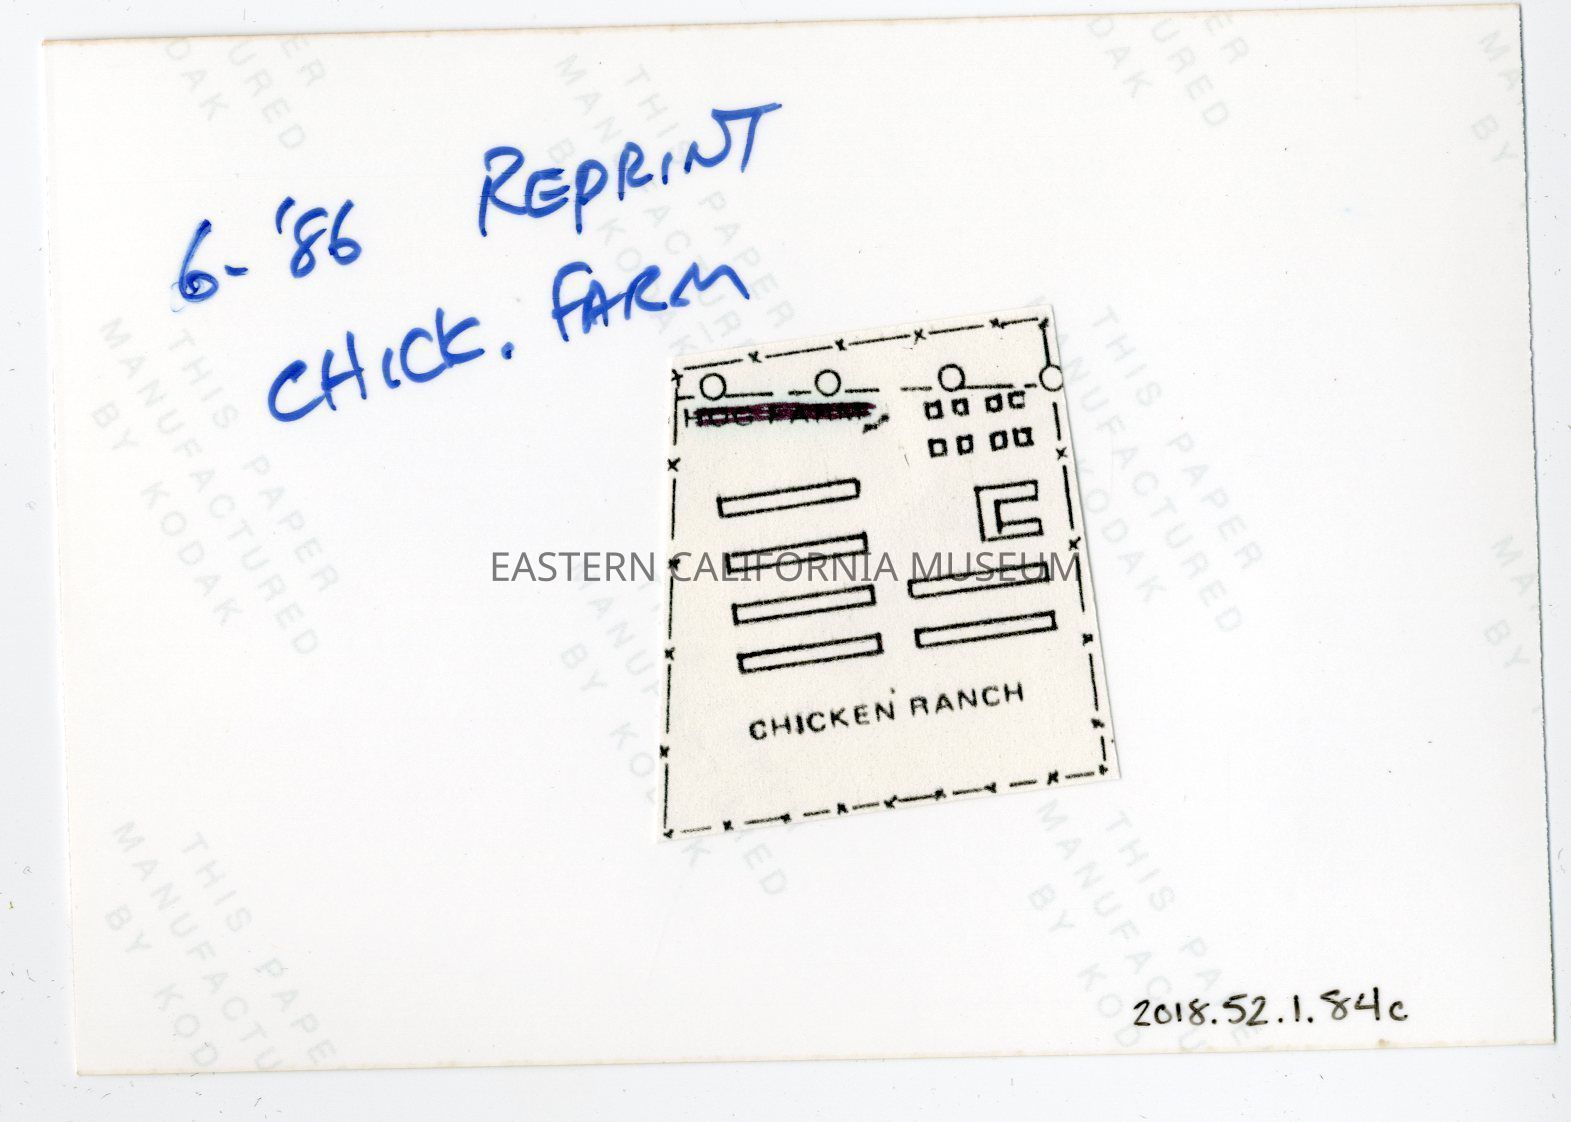 6-'86 REPRINT
CHICK. FARM
HOG FARM
CHICKEN RANCH
EASTERN CALIFORNIA MUSEUM
2018.52.1.84c
THIS PAPER
MANUFACTURED
BY KODAK